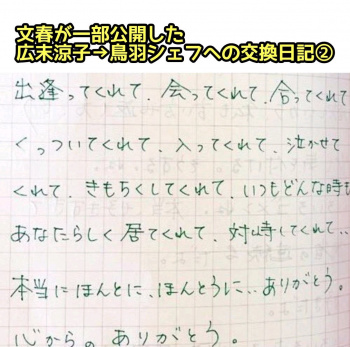 文春が一部公開した
広末涼子→鳥羽シェフへの交換日記②
出逢ってくれて、会ってくれて、合ってくれて
くっついてくれて、入ってくれて、泣かせて
くれて、きもちくしてくれて、いつもどんな時も
あなたらしく居てくれて、対峙してくれて‥
本当にほんとに、ほんとうに‥ありがとう。
心からの ありがとう。